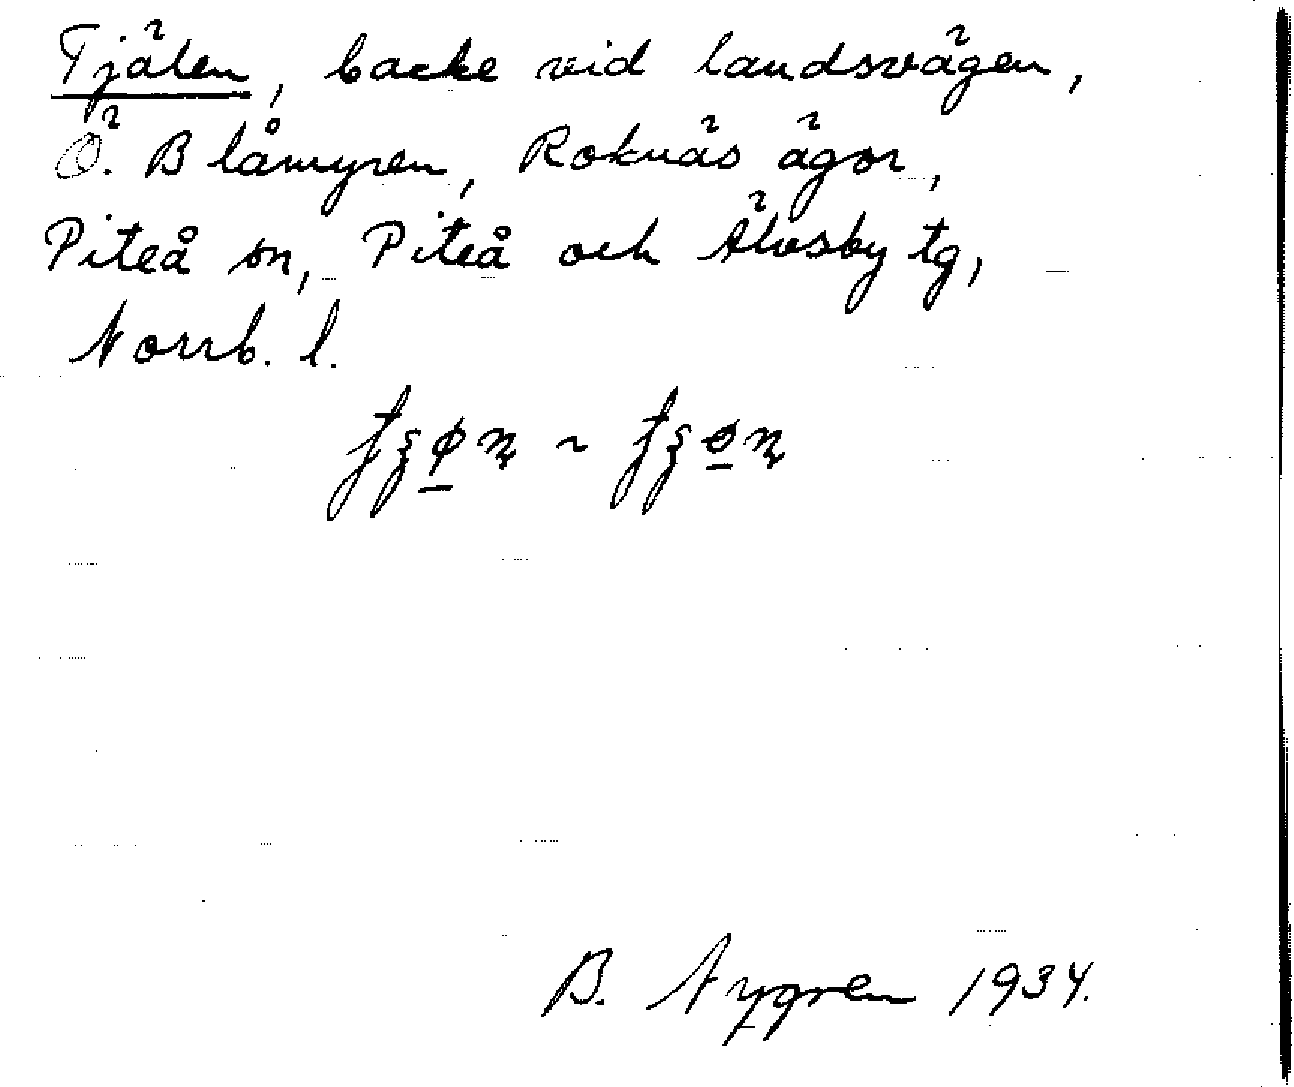 Tjälen, backe vid landsvägen,
Ö. Blåmyren, Roknäs ägor,
Piteå sn, Piteå och Älvsby tg,
Norrb. l.
~
B. Nygren 1934.